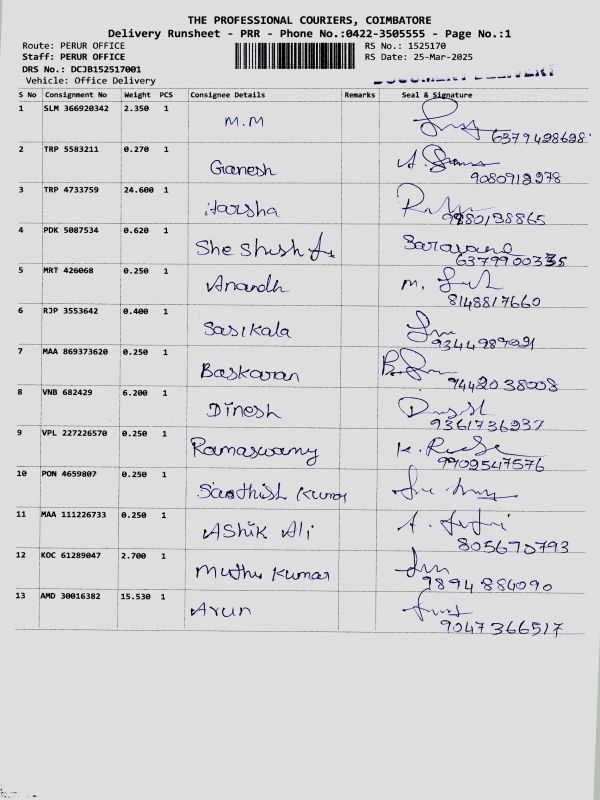 THE PROFESSIONAL COURIERS, COIMBATORE
Delivery Runsheet - PRR - Phone No.:0422-3505555 - Page No.:1
Route: PERUR OFFICE RS No.: 1525170
Staff: PERUR OFFICE RS Date: 25-Mar-2025
DRS No.: DCJB152517001
Vehicle: Office Delivery DOCUMENT DELIVERY
S No Consignment No Weight PCS Consignee Details Remarks Seal & Signature
1 SLM 366920342 2.350 1 M.M
6379428628
2 TRP 5583211 0.270 1 Ganesh
9080912278
3 TRP 4733759 24.600 1 Harsha
9980138865
4 PDK 5087534 0.620 1 Saravana
6379900335
5 MRT 426068 0.250 1 Anandh
8148817660
6 RJP 3553642 0.400 1 Sasikala
9344989021
7 MAA 869373620 0.250 1 Baskaran
9442038008
8 VNB 682429 6.200 1 Dinesh
9361736937
9 VPL 227226570 0.250 1 Ramaswamy
9909547576
10 PON 4659807 0.250 1 Saathish Kumar
11 MAA 111226733 0.250 1 Ashik Ali
8056790793
12 KOC 61289047 2.700 1 Muthu Kumar
9894884090
13 AMD 30016382 15.530 1 Arun
9047366517